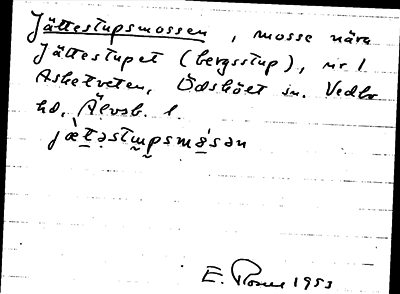 Jättestupsmossen, mosse nära
Jättestupet (bergsstup), nr 1
Asketveten, Ödskölt sn. Vedbo
hd, Älvsb. l.
jætəstupsmåsən
E. Rosén 1953